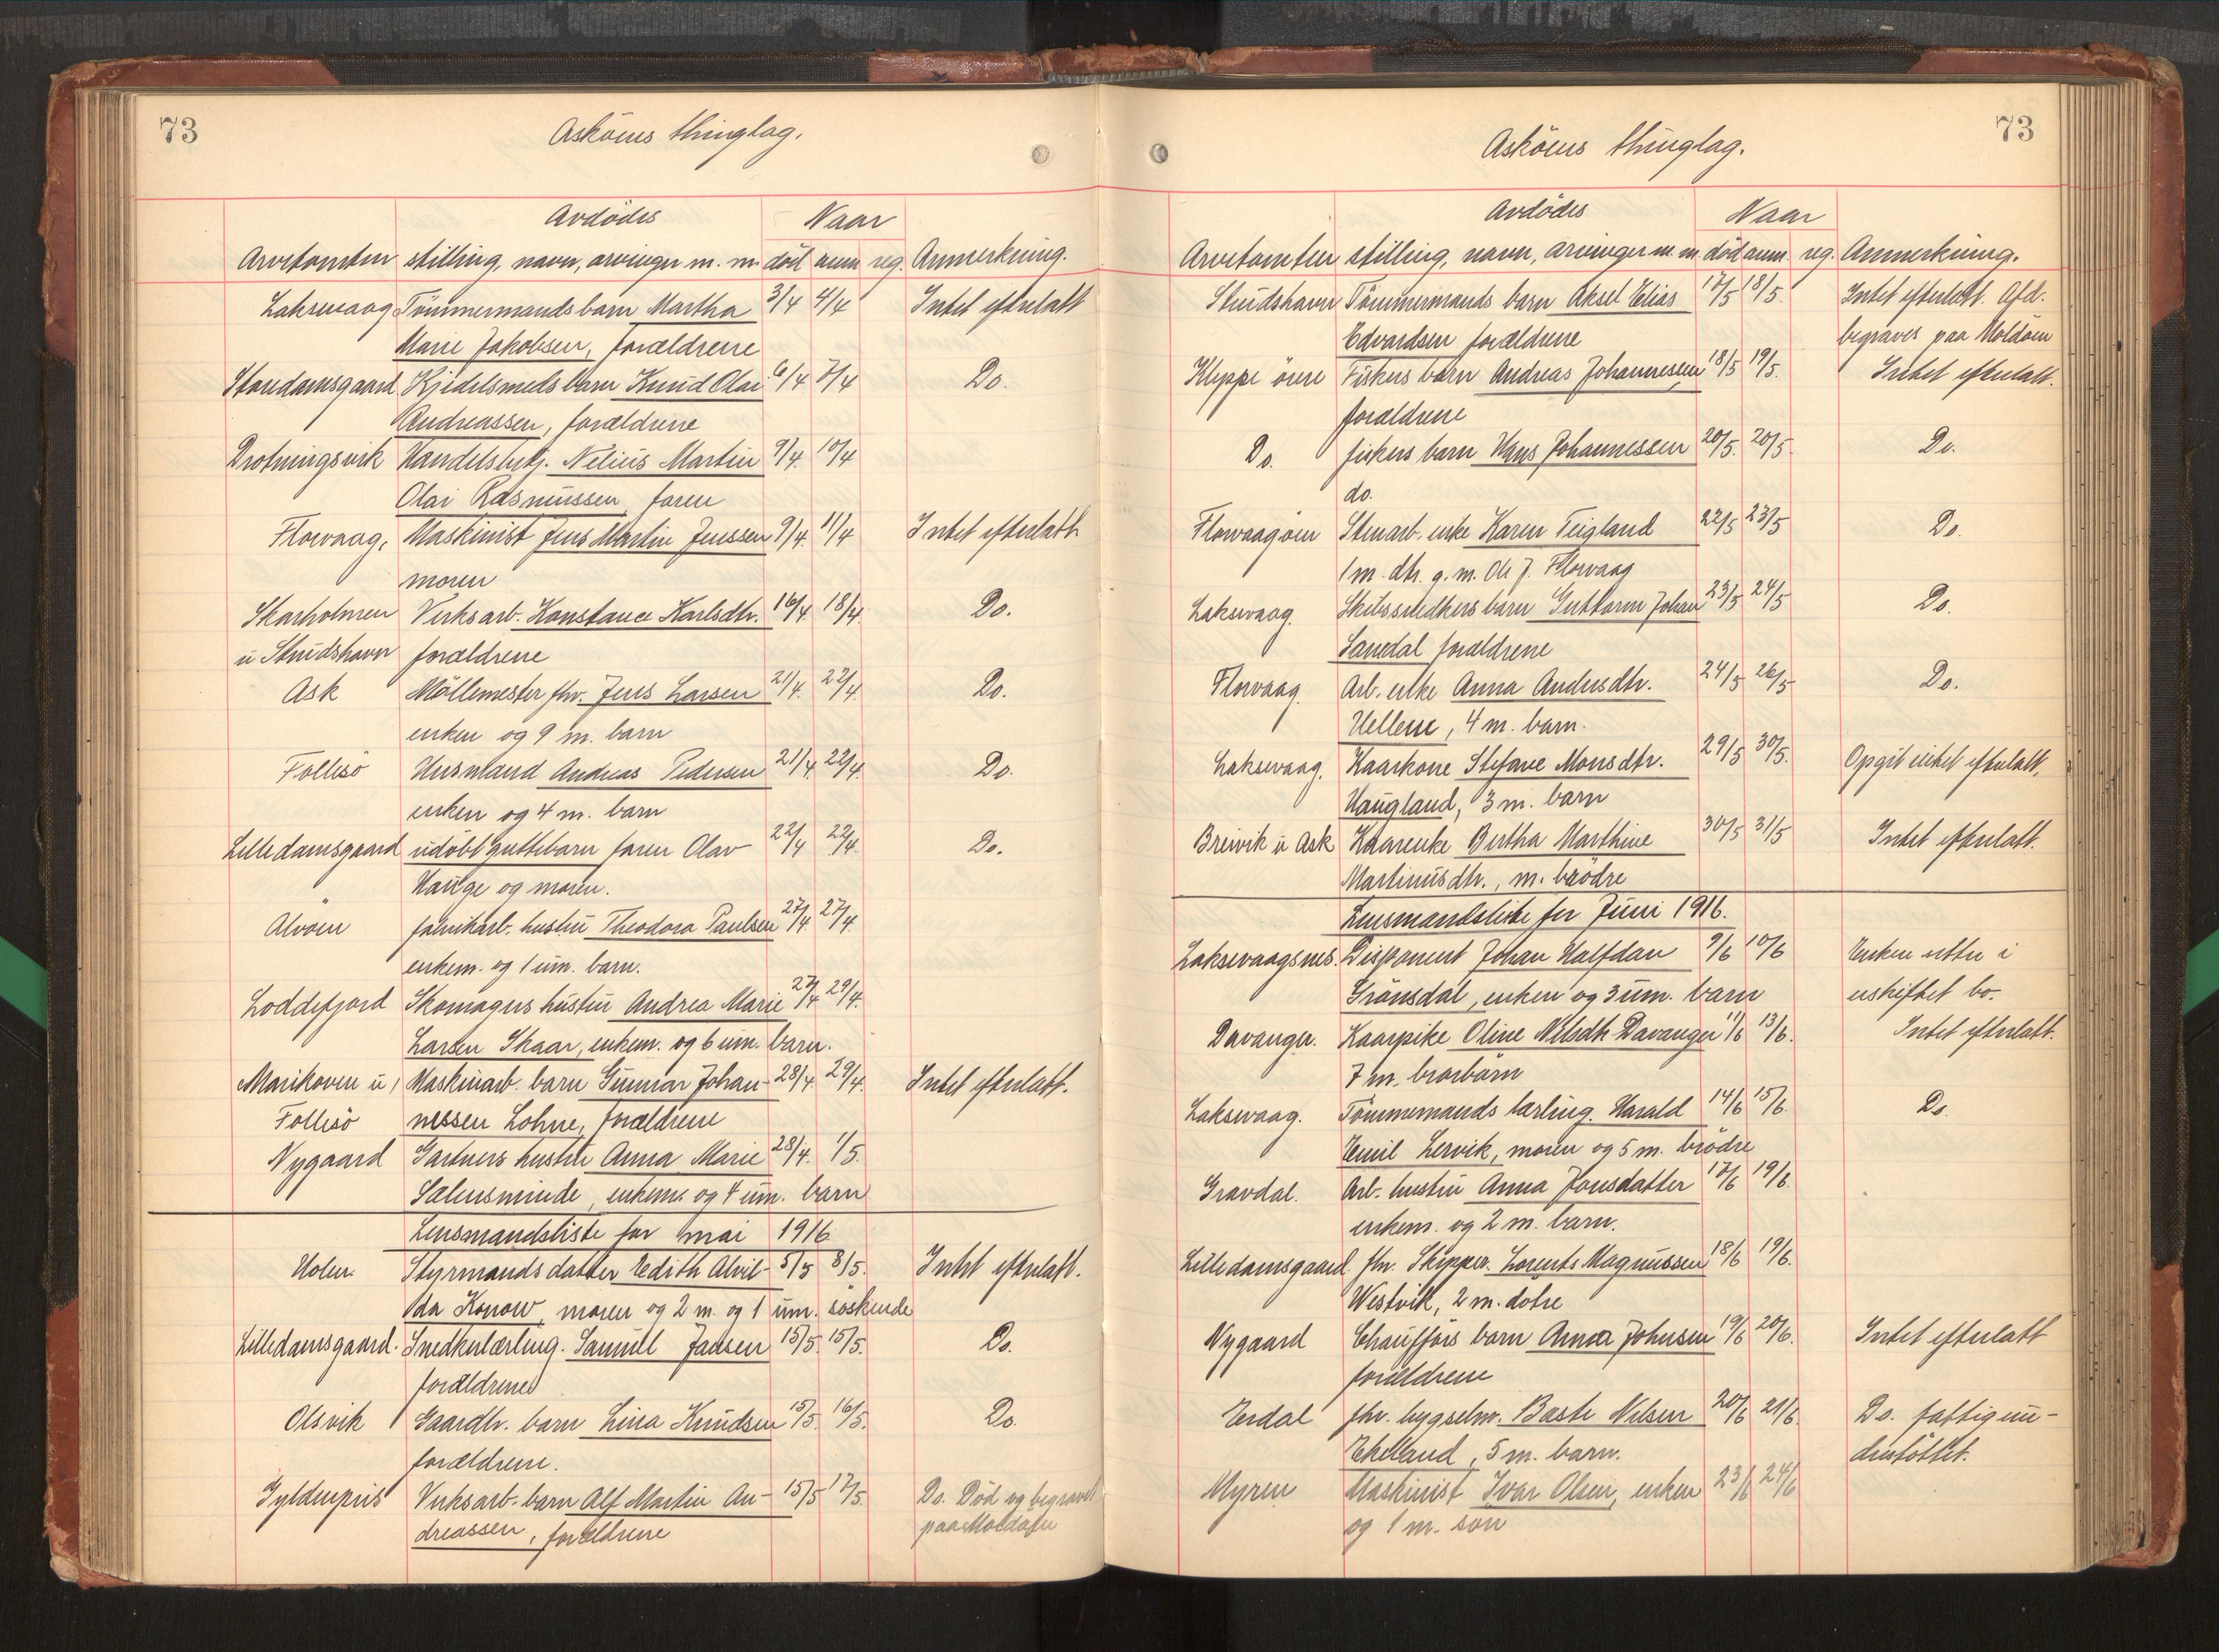 73
Askøens thinglag.
Avdødes Naar
Arvetomten stilling, navn, arvinger m. m. død anm reg. Anmerkning.
Laksevaag Tømmermands barn Martha 3/4 4/4 Intet efterlatt
Marie Jakobsen, forældrene
Storedamsgaard Kjedelsmeds barn Knud Olai 6/4 7/4 Do.
Andreassen, forældrene
Drotningsvik Handelsbetj. Nelius Martin 9/4 10/4
Olai Rasmussen, faren
Florvaag, Maskinist Jens Martin Jenssen 9/4 11/4 Intet efterlatt
moren
Skarholmen Verksarb. Konstance Karlsdtr. 16/4 18/4 Do.
u Strudshavn forældrene
Ask Møllemester fhv. Jens Larsen 21/4 22/4 Do.
enken og 9 m. barn
Follesø Husmand Andreas Pedersen 21/4 22/4 Do.
enken og 4 m. barn
Lilledamsgaard udøbt guttebarn faren Olav 22/4 22/4 Do.
Hauge og moren.
Alvøen fabrikarb. hustru Theodora Paulsen 27/4 27/4
enkem. og 1 um. barn.
Loddefjord Skomagers hustru Andrea Marie 27/4 29/4
Larsen Skaar, enkem. og 6 um. barn.
Marikoven u/ Maskinarb. barn Gunnar Johan- 28/4 29/4 Intet efterlatt.
Follesø nessen Lohne, forældrene
Nygaard Gartners hustru Anna Marie 28/4 1/5
Salensminde, enkem. og 4 um. barn
Lensmandsliste for mai 1916
Holen Styrmands datter Edith Alvil- 5/5 8/5 Intet efterlatt.
da Konow, moren og 2 m. og 1 um. søskende
Lilledamsgaard. Snedkerlærling. Samuel Jansen 15/5 15/5 Do.
forældrene
Olsvik Gaardbr. barn Lina Knudsen 15/5 16/5 Do.
forældrene.
Gyldenpris Verksarb. barn Alf Martin An- 15/5 17/5 Do. Død og begravet
dreassen, forældrene paa Moldøen
73
Askøens thinglag.
Avdødes Naar
Arvetomten stilling, navn, arvinger m. m. død anm reg. Anmerkning.
Strudshavn Tømmermands barn Aksel Elias 17/5 18/5 Intet efterlatt. Afd.
Edvardsen forældrene begraves paa Moldøen
Kleppe øvre Fiskers barn Andreas Johannessen 18/5 19/5 Intet efterlatt.
forældrene
Do. fiskers barn Hans Johannessen 20/5 20/5 Do.
do.
Florvaagøen Stenarb. enke Karen Teigland 22/5 23/5 Do.
1 m. dtr. g. m. Ole J. Florvaag
Laksevaag. Skibssnedkers barn Guttorm Johan 23/5 24/5 Do.
Sandal forældrene
Florvaag Arb. enke Anna Andersdtr. 24/5 26/5 Do.
Hellene, 4 m. barn.
Laksevaag. Kaarkone Stefane Monsdtr. 29/5 30/5 Opgit intet efterlatt,
Haugland, 3 m. barn
Breivik u Ask Kaarenke Bertha Marthine 30/5 31/5 Intet efterlatt.
Martinusdtr., m. brødre
Lensmandsliste for Juni 1916.
Laksevaagsnes. Disponent Johan Halfdan 9/6 10/6 Enken sitter i
Grønsdal, enken og 3 um. barn uskiftet bo.
Davanger. Kaarpike Oline Nilsdtr Davanger 11/6 13/6 Intet efterlatt.
7 m. brorbarn
Laksevaag. Tømmermands lærling. Harald 14/6 15/6 Do.
Emil Lervik, moren og 5 m. brødre
Gravdal. Arb. hustru Anna Jonsdatter 17/6 19/6
enkem. og 2 m. barn.
Lilledamsgaard. fhv. Skipper. Lorents Magnussen 18/6 19/6
Westvik, 2 m. døtre
Nygaard Chaufførs barn Anna Johnsen 19/6 20/6 Intet efterlatt
forældrene
Erdal fhv. bygselm. Baste Nilsen 20/6 21/6 Do. fattigun-
Ekeland, 5 m. barn. derstøttet.
Myren Maskinist Ivar Olsen, enken 23/6 24/6
og 1 m. søn